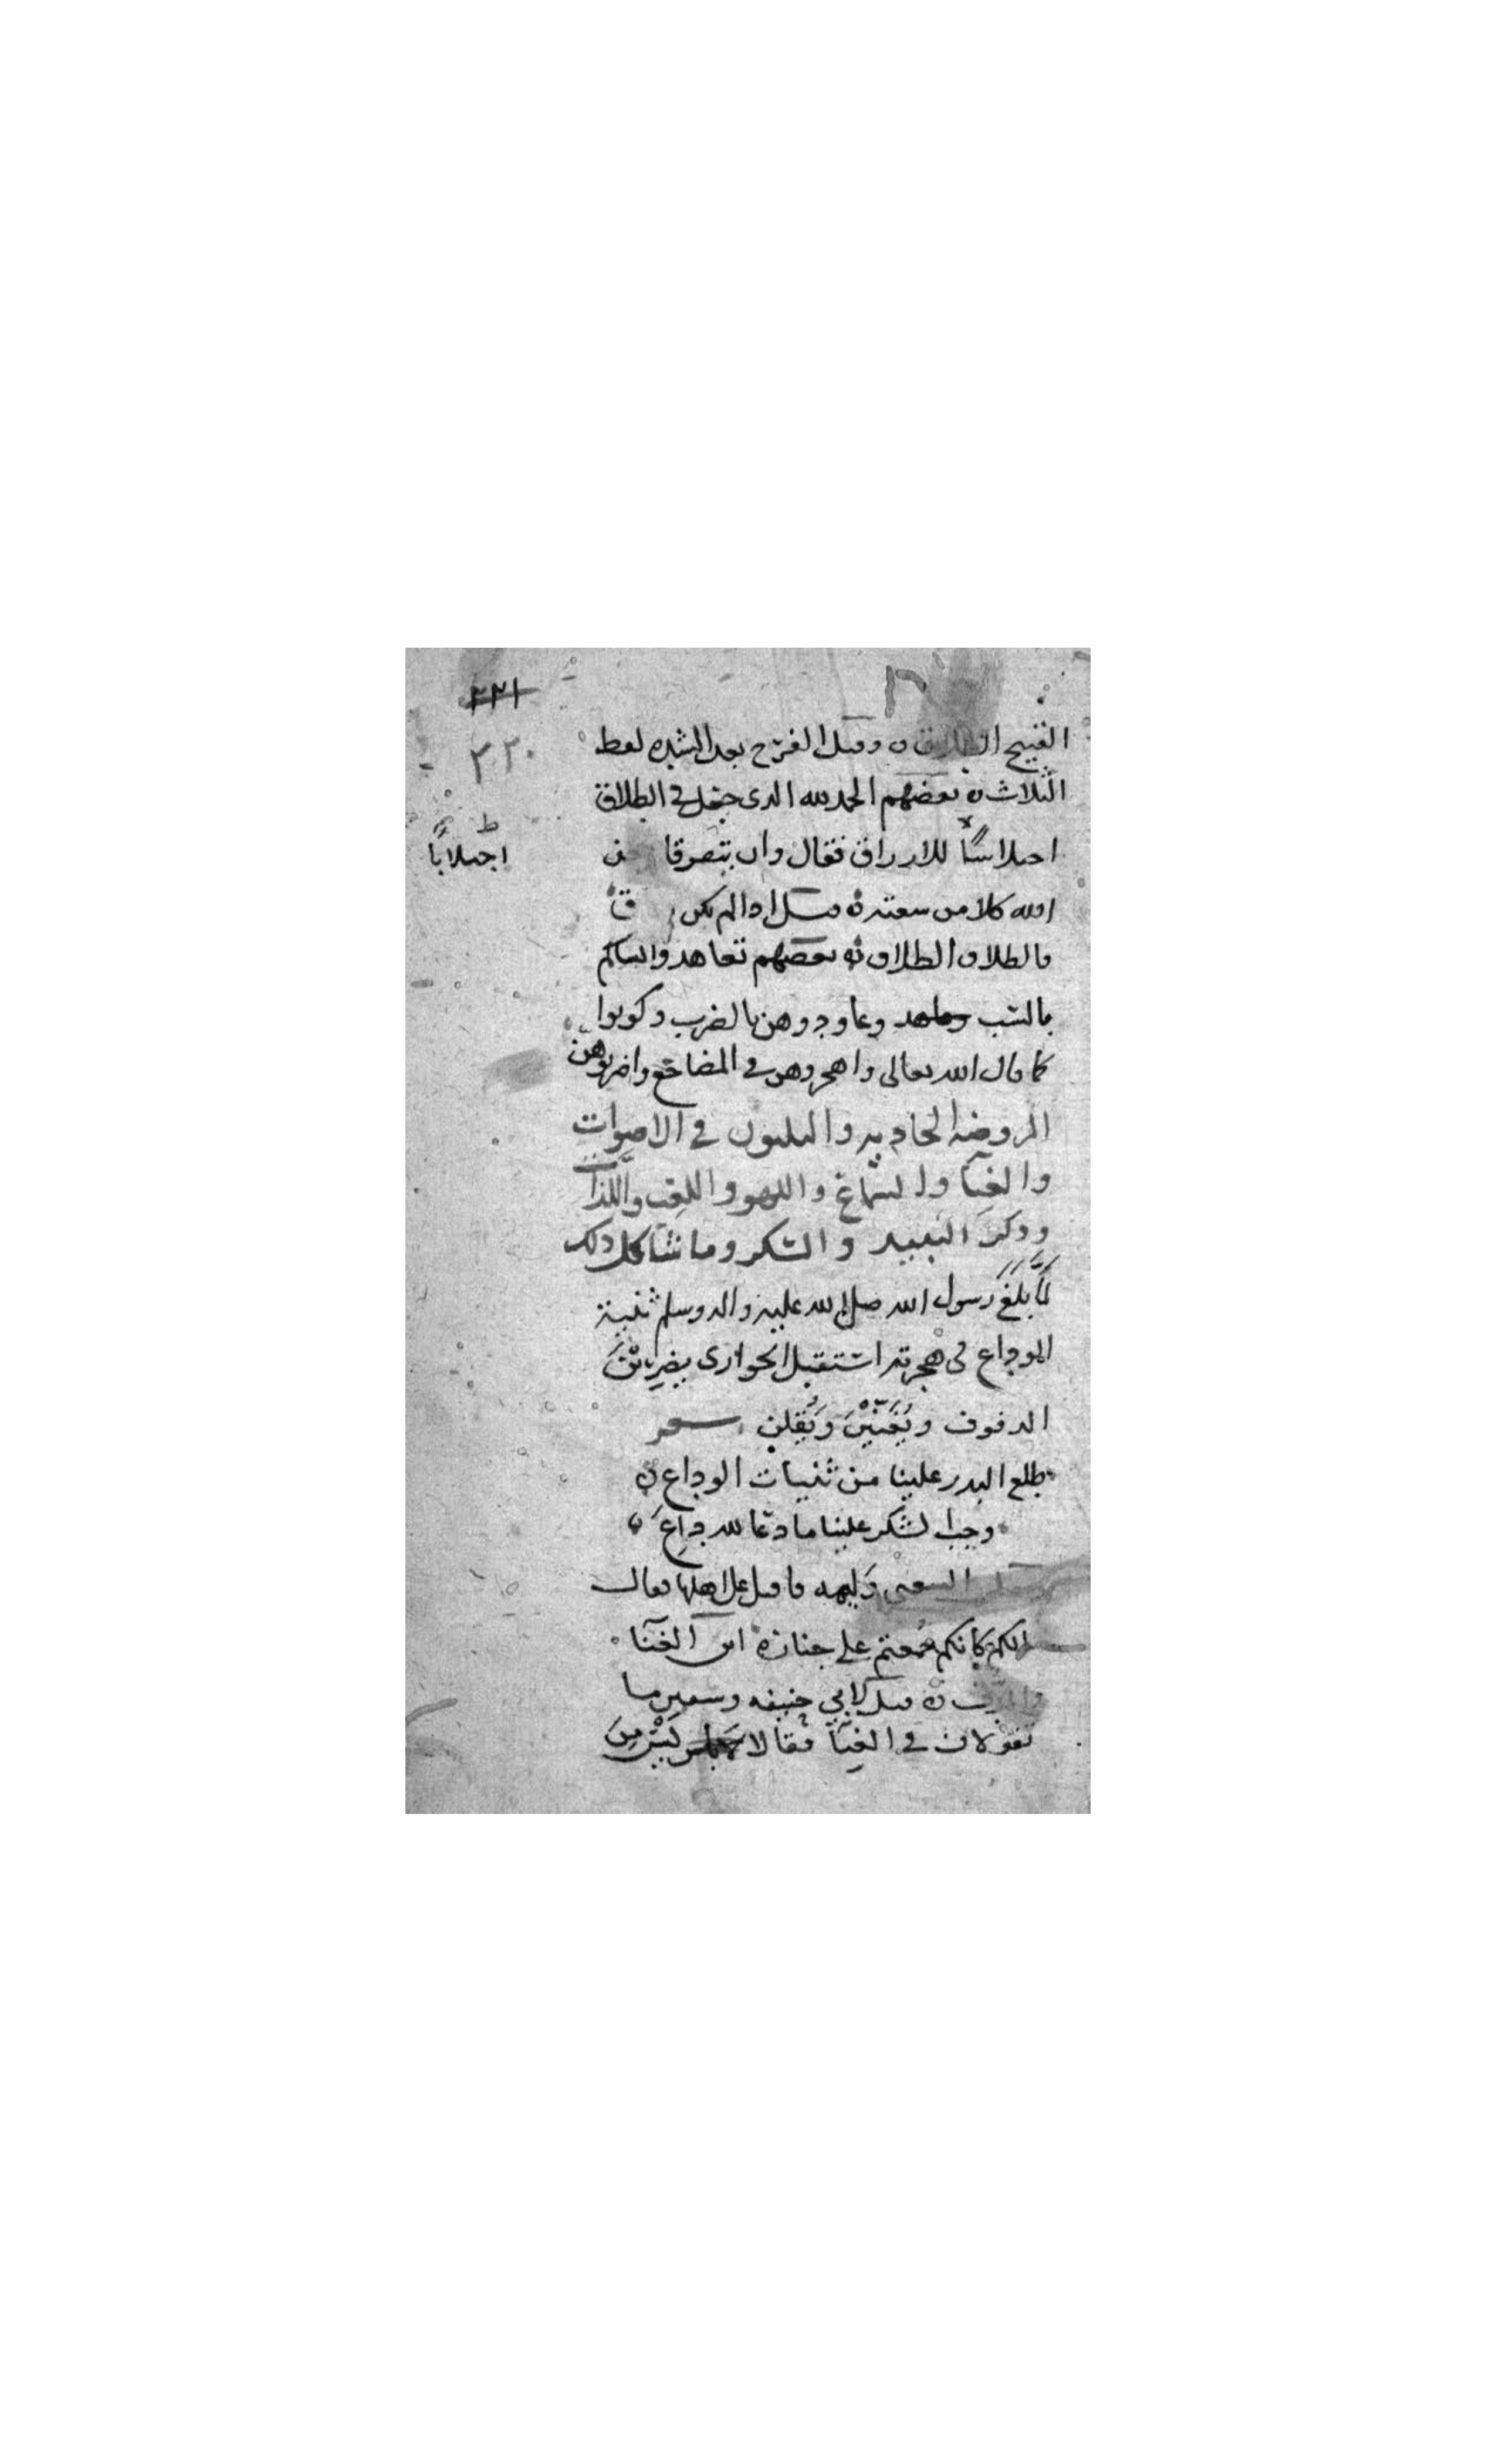 ٢٢١
٢٢٠
القبيح الطلاق وقيل الفرح بعد الشده لفظ
الثلاث ٥ بعضهم الحمد لله الدى جعل في الطلاق
احلاسًا للارزاق فقال وان يتفرقا يغن
اجتلابًا ط
الله كلا من سعته ٥ قيل ادا لم يكن
فالطلاق الطلاق ٥ بعضهم تعاهدوا نساكم
بالسب وعاودوهن بالضرب وكونوا
كما قال الله تعالى واهجروهن في المضاجع واضربوهن
الروضه الحاديه والثلثون في الاصوات
والغنآ والسماع واللهو واللعب واللذات
وذكر النبيد والسكر وما شاكل ذلك
لمّا بلغ رسول الله صلى الله عليه واله وسلم ثنية
الوداع في هجرته استقبل الجوارى يضربنَ
الدفوف ويُغنّينَ ويَقلن شعر
طلع البدر علينا من ثنيات الوداع ٥
وجب الشكر علينا ما دعا لله داعَ ٥
الشعبى وليمه فاقبل على اهلها فقال
مالكم كانكم جمعتم على جنازه اين الغنآ
والدف ٥ قيل لابي حنيفه وسفين ما
تقولان في الغنآ فقالا ليس من